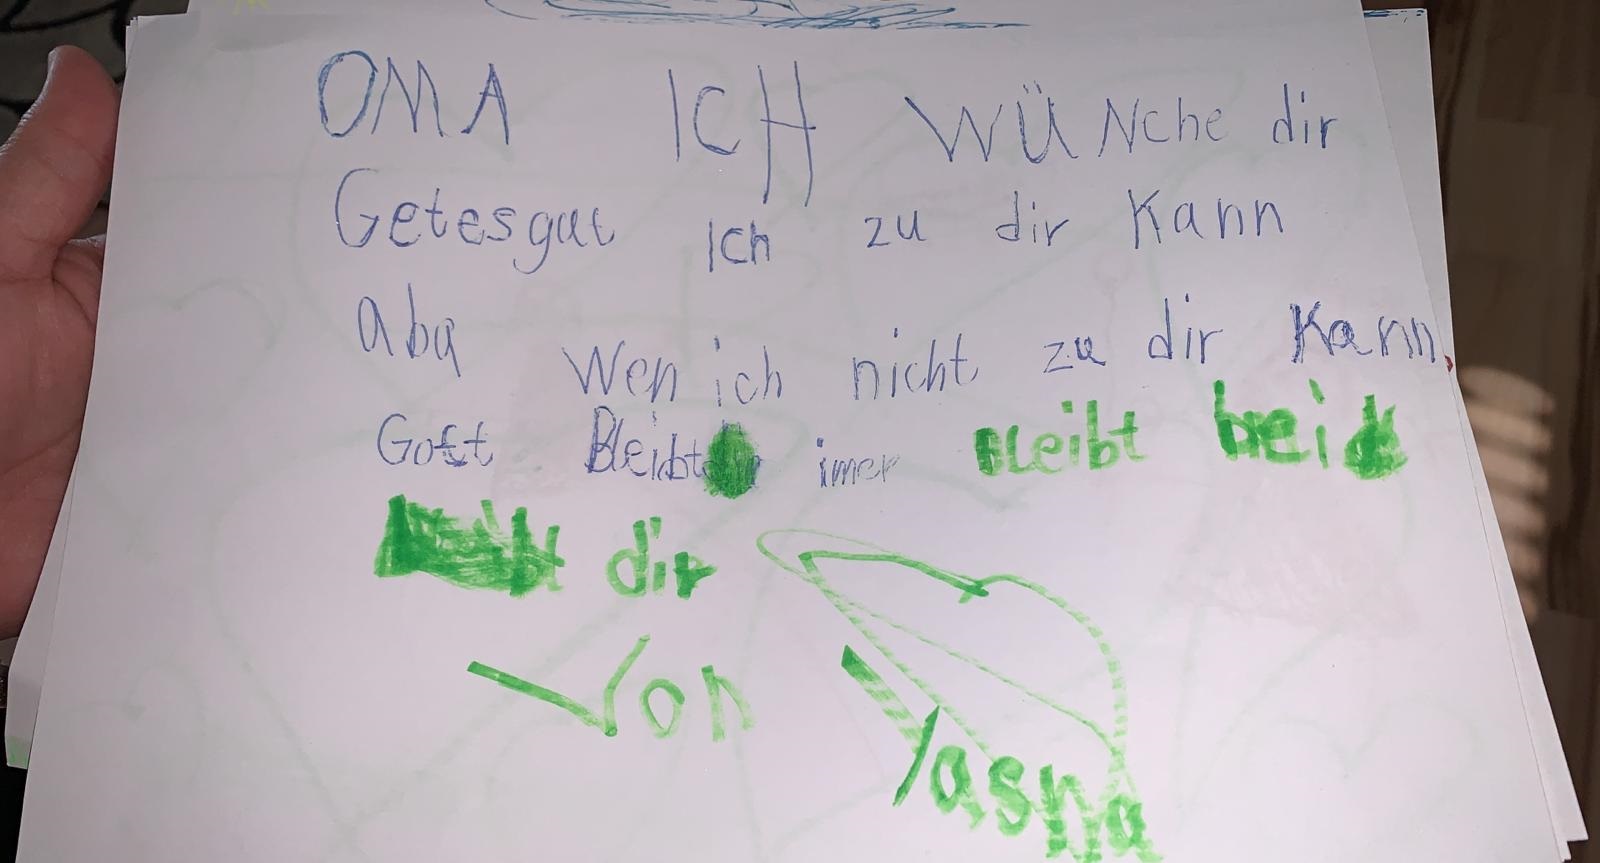 OMA ICH WÜNche dir
Getesgut Ich zu dir Kann
aba Wen ich nicht zu dir Kann.
Gott Bleibt imer Bleibt bei
dir
Von
Yasna